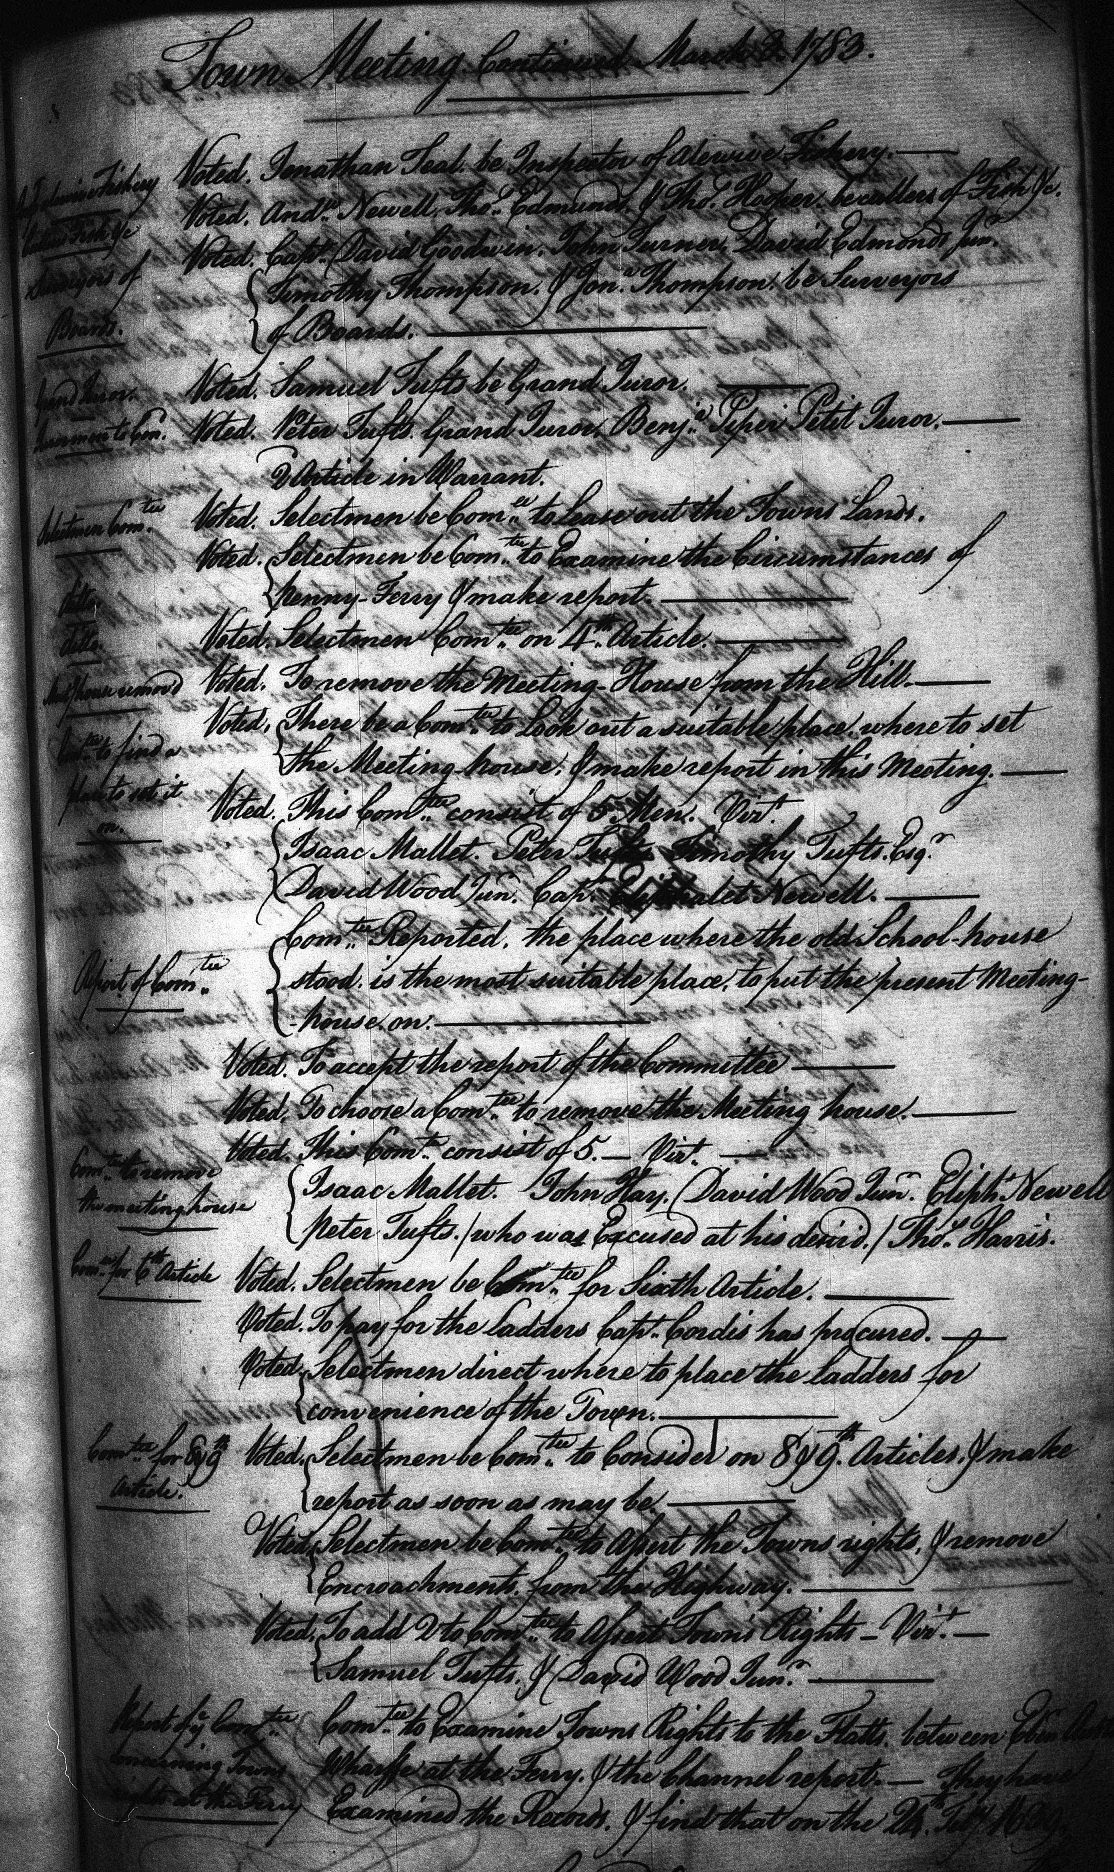 Town Meeting Continued March 3. 1783.
Voted. Jonathan Teal. be Inspector of Alewive Fishery.
Alewive Fishery
Voted. Andw. Newell, Thos. Edmunds, & Thos. Hooper. be cullers of Fish &c.
Cullers Fish &c
Voted. Capt. David Goodwin. John Turner, David Edmonds Junr.
Surveyors of
Timothy Thompson. & Jona. Thompson. be Surveyors
Boards.
of Boards.
Grand Juror.
Voted. Samuel Tufts be Grand Juror.
Voted. Peter Tufts. Grand Juror. Benja. Piper Petit Juror.
2 Article in Warrant.
Selectmen Comtee
Voted. Selectmen be Comtee. to Lease out the Towns Lands.
Voted. Selectmen be Comtee. to Examine the Circumstances of
ditto.
Penny-Ferry & make report.
ditto.
Voted. Selectmen Comtee. on 4th. Article.
house removd
Voted. To remove the Meeting-House from the Hill.
Comtee to find a
Voted. There be a Comtee. to Look out a suitable place. where to set
place to set it
the Meeting-house. & make report in this Meeting.
on.
Voted. This Comtee. consist of 5 Men. Vizt.
Isaac Mallet. Peter Tufts Timothy Tufts. Esqr.
David Wood Junr. Capt. Eliphalet Newell.
Report of Comtee.
Comtee. Reported. the place where the old School-house
stood. is the most suitable place. to put the present Meeting-
-house. on.
Voted. To accept the report of the Committee
Voted. To choose a Comtee. to remove the Meeting house.
Voted. This Comtee. consist of 5. — Vizt. —
Comtee. to remove
the meeting house
Isaac Mallet. John Hay. David Wood Junr. Eliph. Newell
Peter Tufts. / who was Excused at his desire. / Thos. Harris.
Comtee for 6th Article
Voted. Selectmen be Comtee. for Sixth Article.
Voted. To pay for the ladders Capt. Cordis has procured.
Voted. Selectmen direct where to place the ladders for
convenience of the Town.
Comtee for 8 & 9th
Article.
Voted. Selectmen be Comtee. to Consider on 8 & 9th. Articles. & make
report as soon as may be.
Voted. Selectmen be Comtee. to Assert the Towns rights. & remove
Encroachments. from the Highway.
Voted. To add 2 to Comtee. to Assert Towns Rights — Vizt. —
Samuel Tufts. & David Wood Junr.
Report of ye. Comtee.
concerning Towns
rights at the Ferry
Comtee. to Examine Towns Rights to the Flatts. between
Wharffe at the Ferry. & the Channel report. — They have
Examined the Records. & find that on the 24th. Feby.